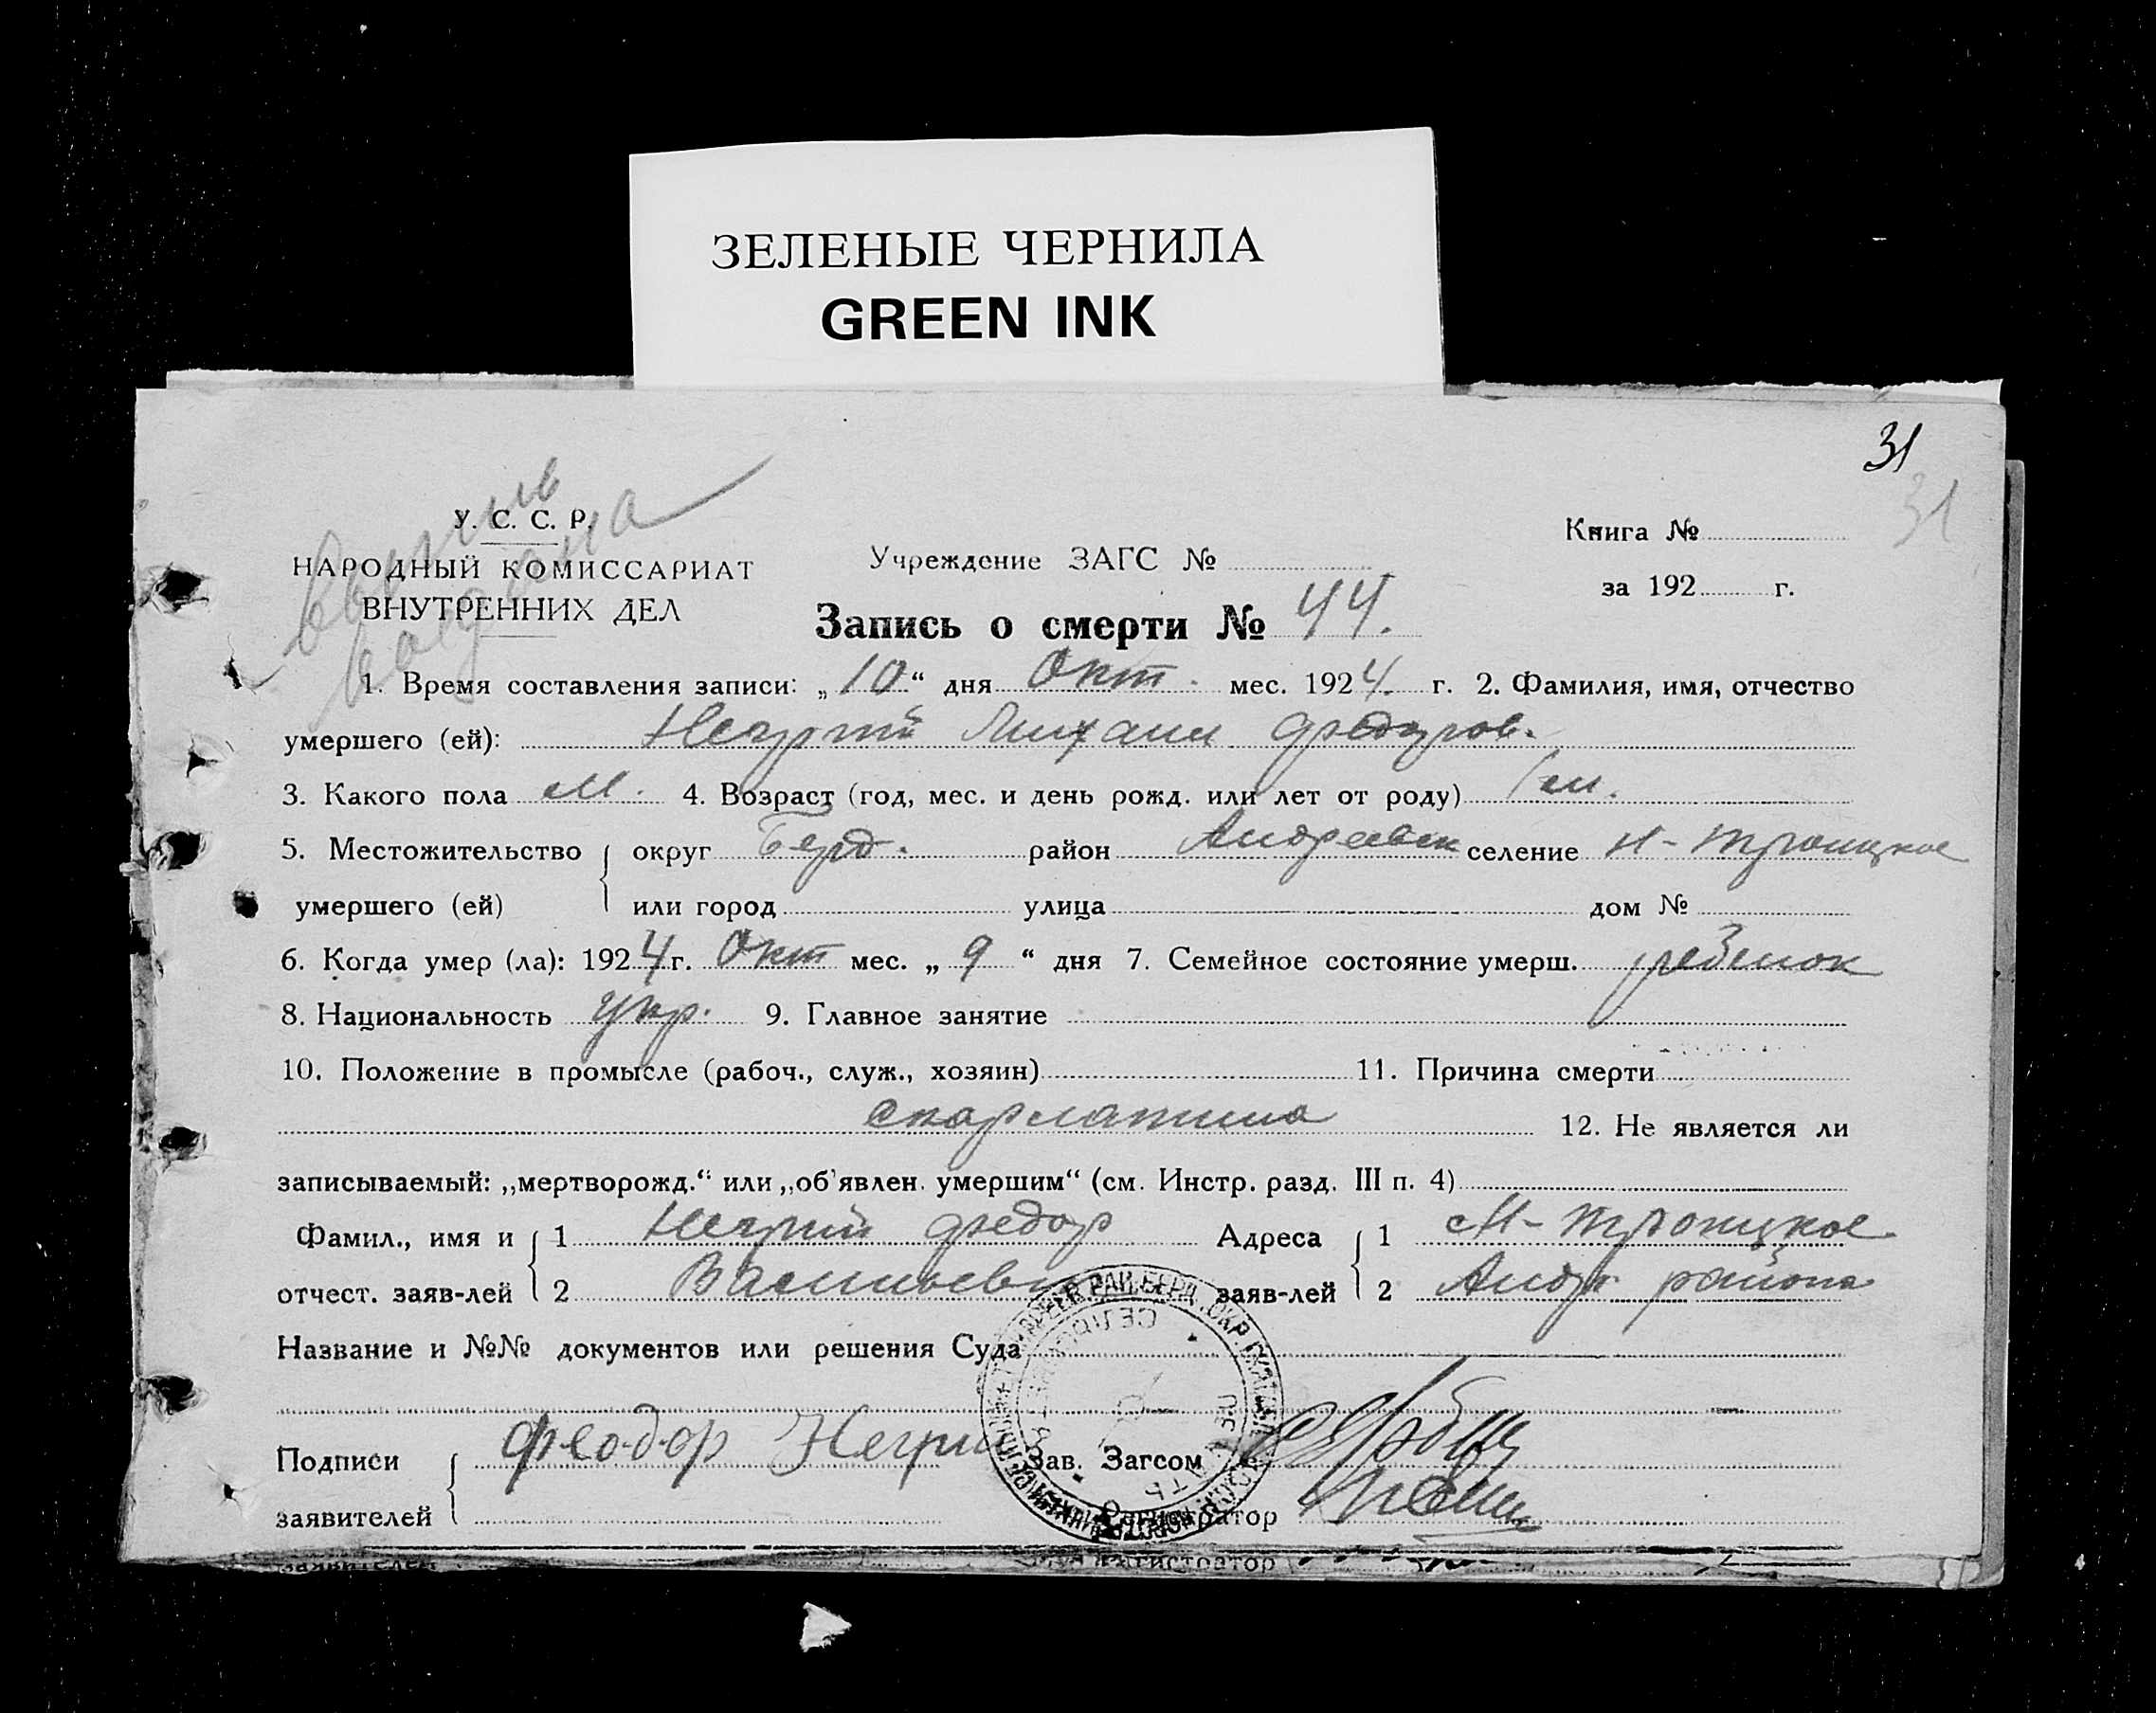 ЗЕЛЕНЫЕ ЧЕРНИЛА
GREEN INK
31
31
У. С. С. Р.
НАРОДНЫЙ КОМИССАРИАТ
ВНУТРЕННИХ ДЕЛ
Учреждение ЗАГС №
Книга №
за 192 г.
Запись о смерти № 44.
1. Время составления записи: „10“ дня Окт. мес. 1924. г. 2. Фамилия, имя, отчество
умершего (ей): Негрий Михаил Федоров.
3. Какого пола М. 4. Возраст (год, мес. и день рожд. или лет от роду)
5. Местожительство округ Берд. район Андреевск селение Н-Троицкое
умершего (ей) или город улица дом №
6. Когда умер (ла): 1924 г. Окт мес. „9“ дня 7. Семейное состояние умерш. ребенок
8. Национальность укр. 9. Главное занятие
10. Положение в промысле (рабоч., служ., хозяин) 11. Причина смерти
скарлатина 12. Не является ли
записываемый: „мертворожд.“ или „об'явлен. умершим“ (см. Инстр. разд. III п. 4)
Фамил., имя и 1 Негрий Федор Адреса 1 Н-Троицкое
отчест. заяв-лей 2 Васильев заяв-лей 2 Андр. района
Название и №№ документов или решения Суда
Подписи Феодор Негрий Зав. Загсом
заявителей Регистратор